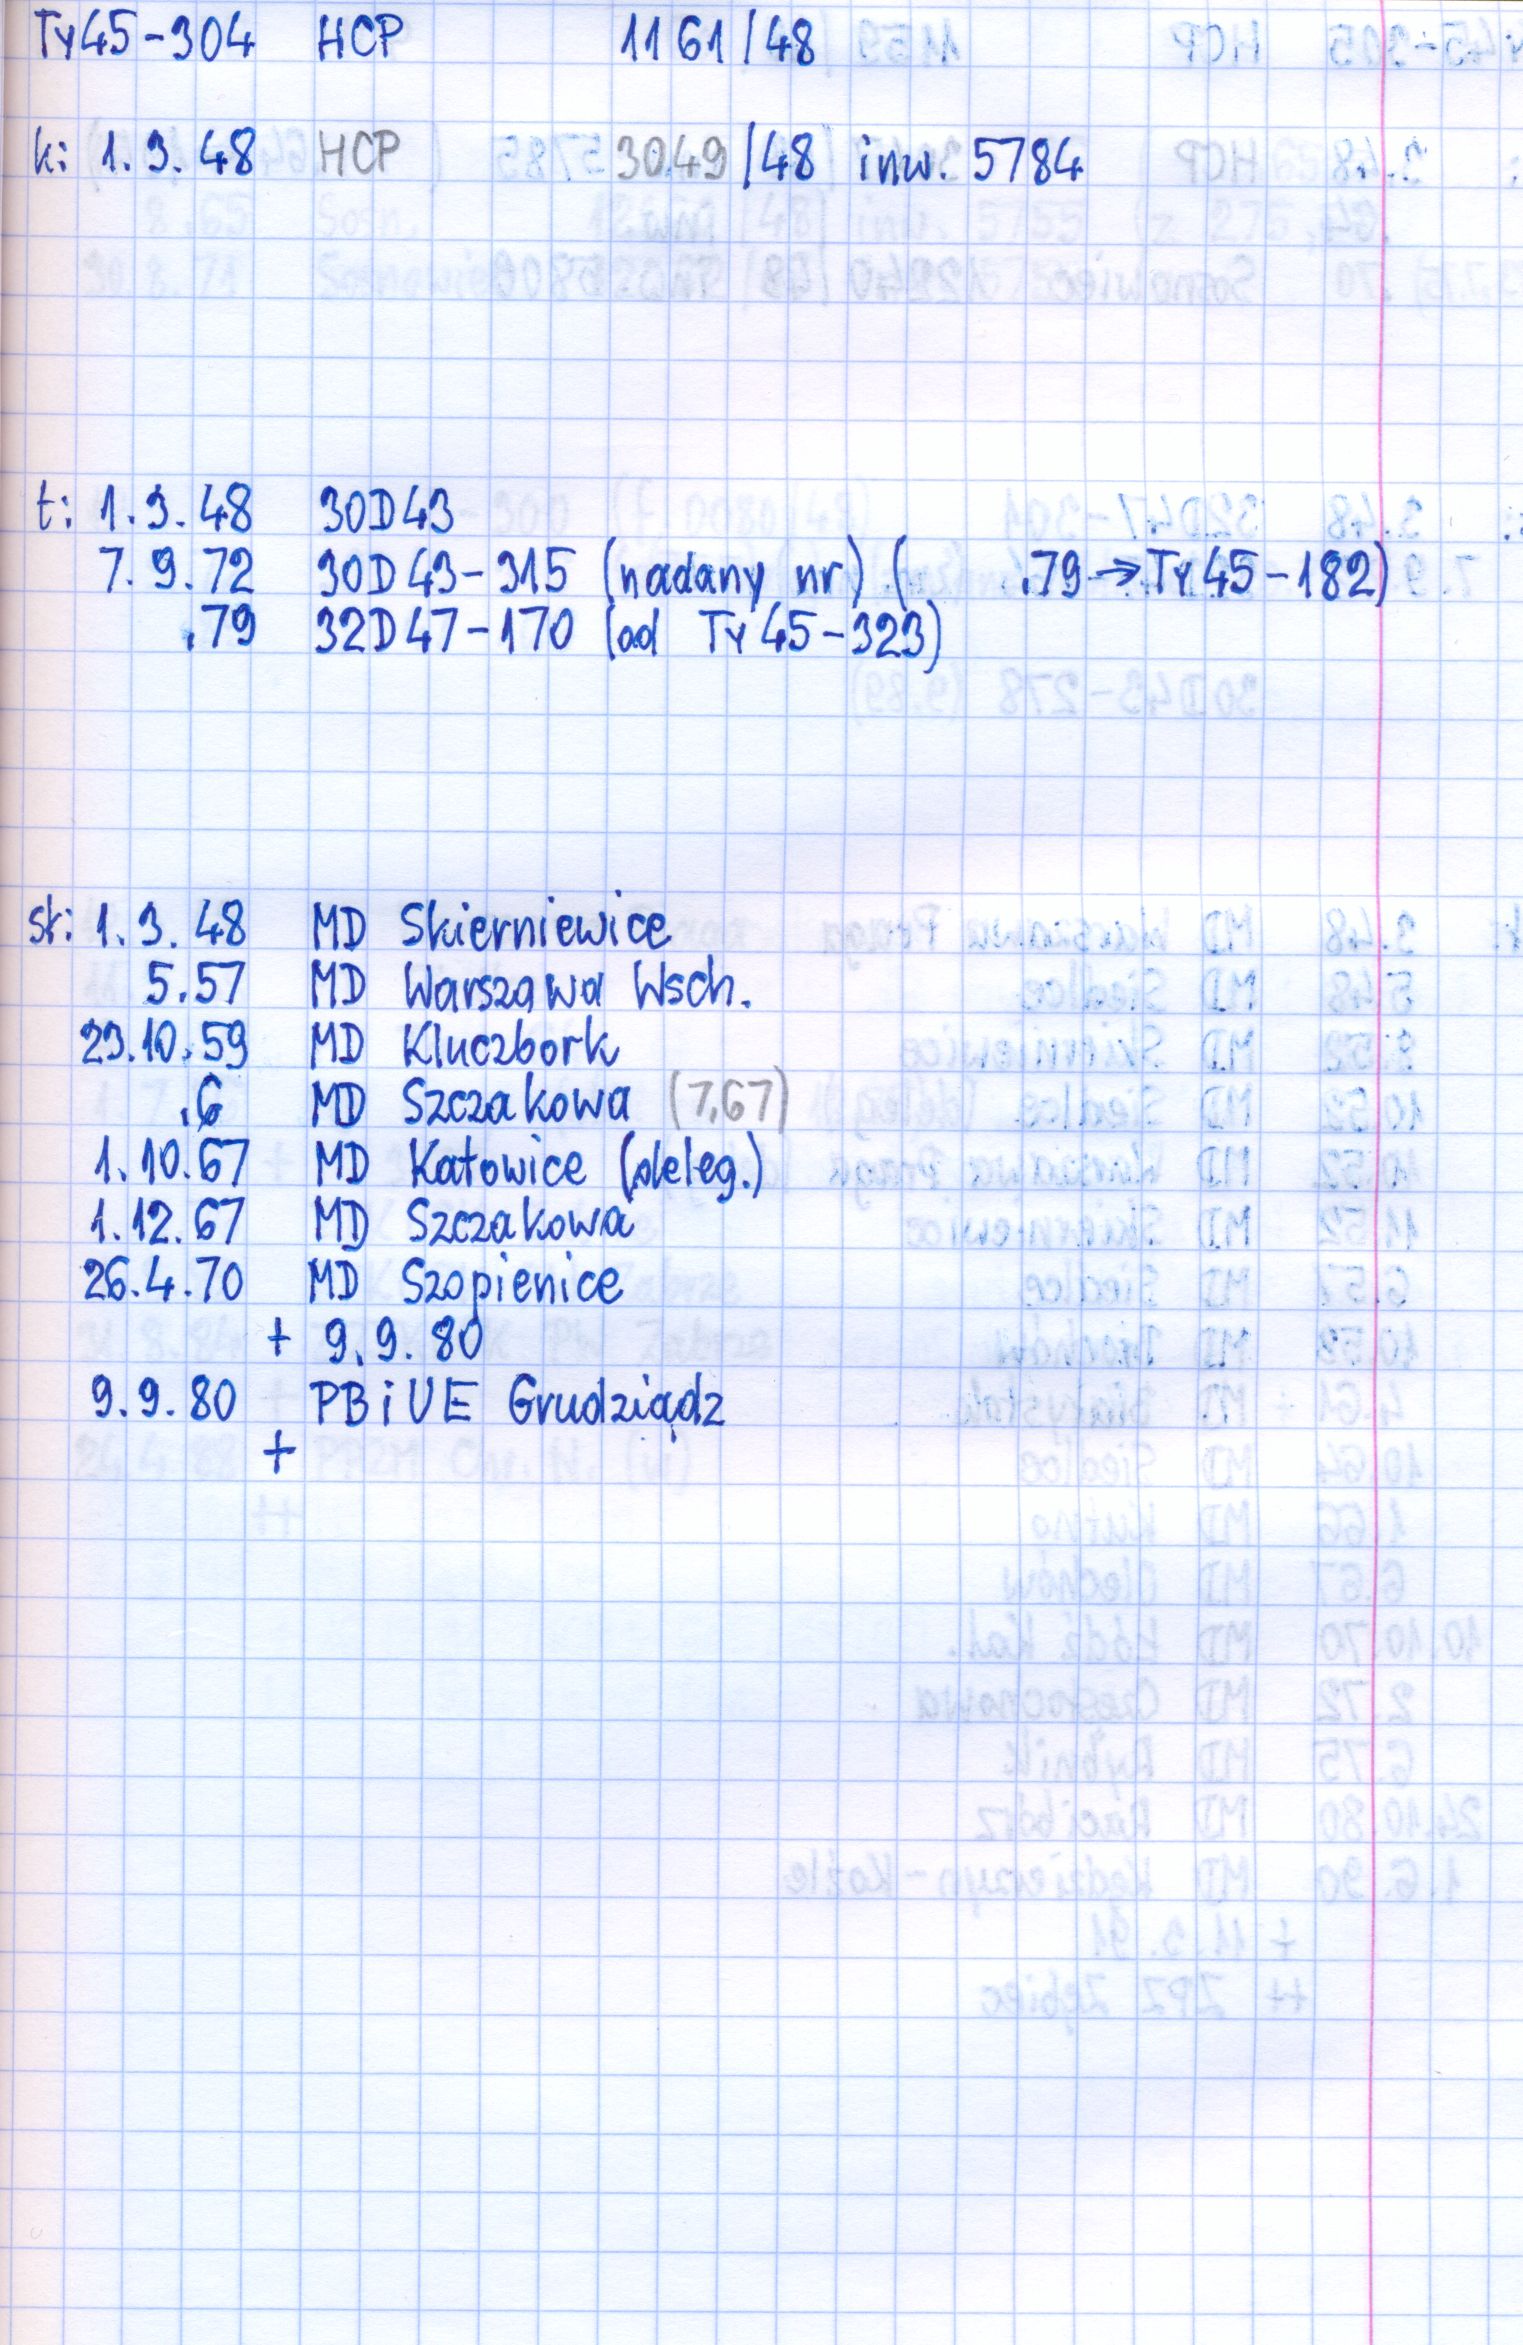 Ty45-304 HCP 1161/48
k: 1.3.48 HCP 3049/48 inw. 5784
t: 1.3.48 30D43
7.9.72 30D43-315 (nadany nr) ( .79 → Ty45-182)
.79 32D47-170 (od Ty45-323)
st: 1.3.48 MD Skierniewice
5.57 MD Warszawa Wsch.
23.10.59 MD Kluczbork
.6 MD Szczakowa (7.67)
1.10.67 MD Katowice (deleg.)
1.12.67 MD Szczakowa
26.4.70 MD Szopienice
+ 9.9.80
9.9.80 PBiUE Grudziądz
+